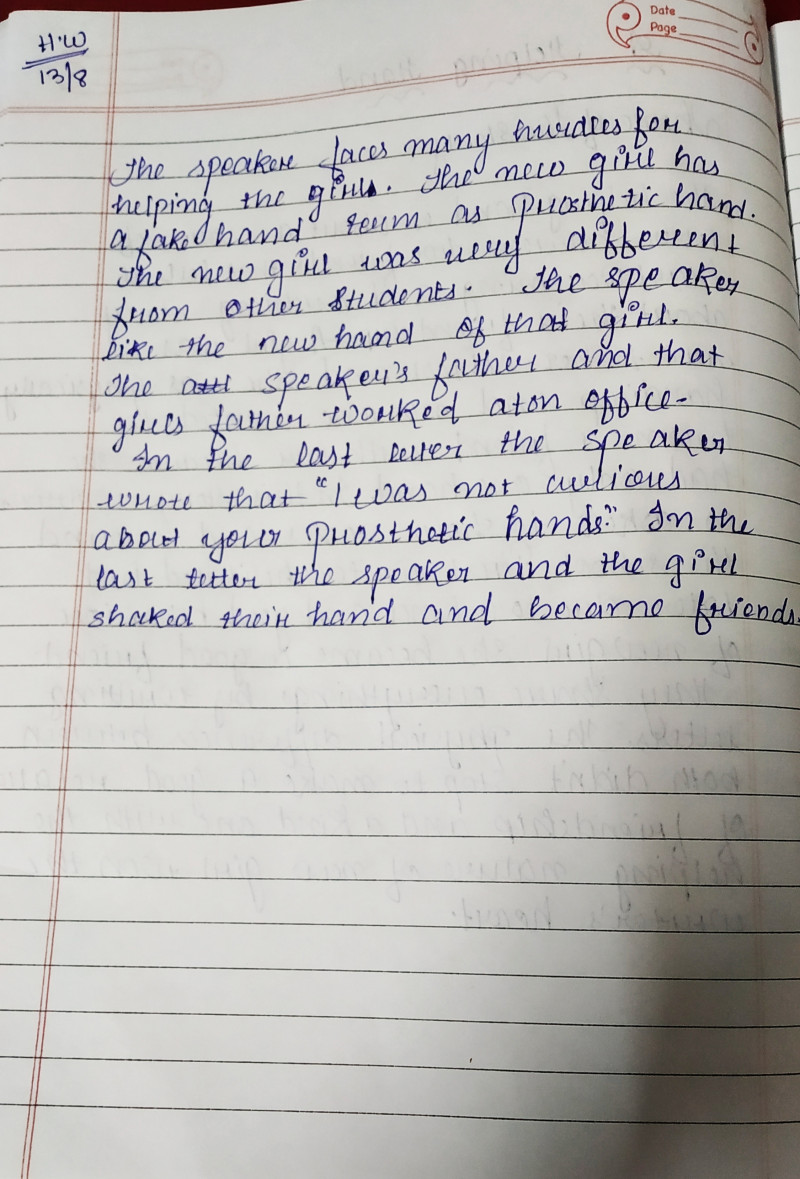 H.W
13/8
Date
Page
The speaker faces many hurdles for
helping the girl. The new girl has
a fake hand term as Prosthetic hand.
The new girl was very different
from other students. The speaker
like the new hand of that girl.
The speaker's father and that
girls father worked aton office-
In the last letter the speaker
wrote that "I was not curious
about your Prosthetic hands." In the
last letter the speaker and the girl
shaked their hand and became friends.